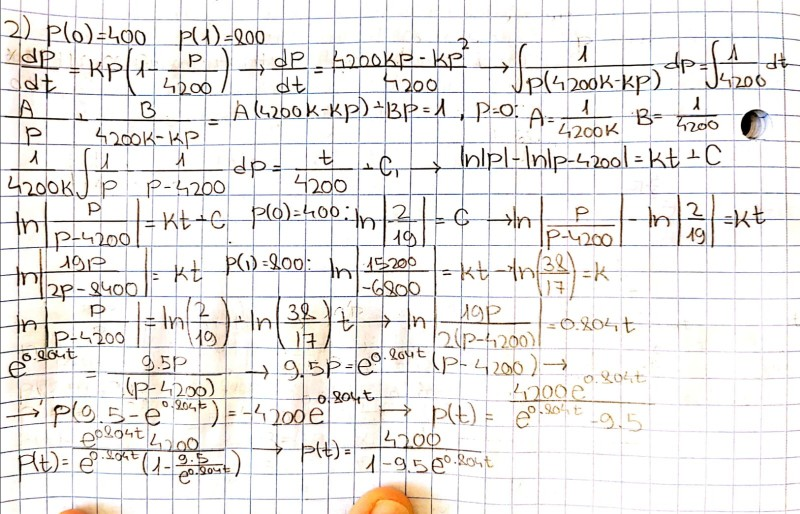 2) P(0)=400 P(1)=800
dP/dt = KP(1 - P/4200) → dP/dt = (4200KP - KP²)/4200 → ∫ 1/(P(4200K-KP)) dP = ∫ 1/4200 dt
A/P + B/(4200K-KP) = A(4200K-KP)+BP=1, P=0: A = 1/4200K B = 1/4200
1/4200K ∫ 1/P - 1/(P-4200) dP = t/4200 + C, → ln|P|-ln|P-4200|=Kt+C
ln|P/(P-4200)| = Kt+C. P(0)=400: ln|2/19| = C → ln|P/(P-4200)| - ln|2/19| = Kt
ln|19P/(2P-8400)| = Kt P(1)=800: ln|15200/-6800| = Kt → ln(38/17) = K
ln|P/(P-4200)| = ln(2/19) + ln(38/17) t → ln|19P/(2(P-4200))| = 0.804t
e^0.804t = 9.5P/(P-4200) → 9.5P = e^0.804t (P-4200) →
→ P(9.5 - e^0.804t) = -4200e^0.804t → P(t) = 4200e^0.804t/(e^0.804t - 9.5)
P(t) = e^0.804t 4200/(e^0.804t (1 - 9.5/e^0.804t)) → P(t) = 4200/(1 - 9.5e^0.804t)